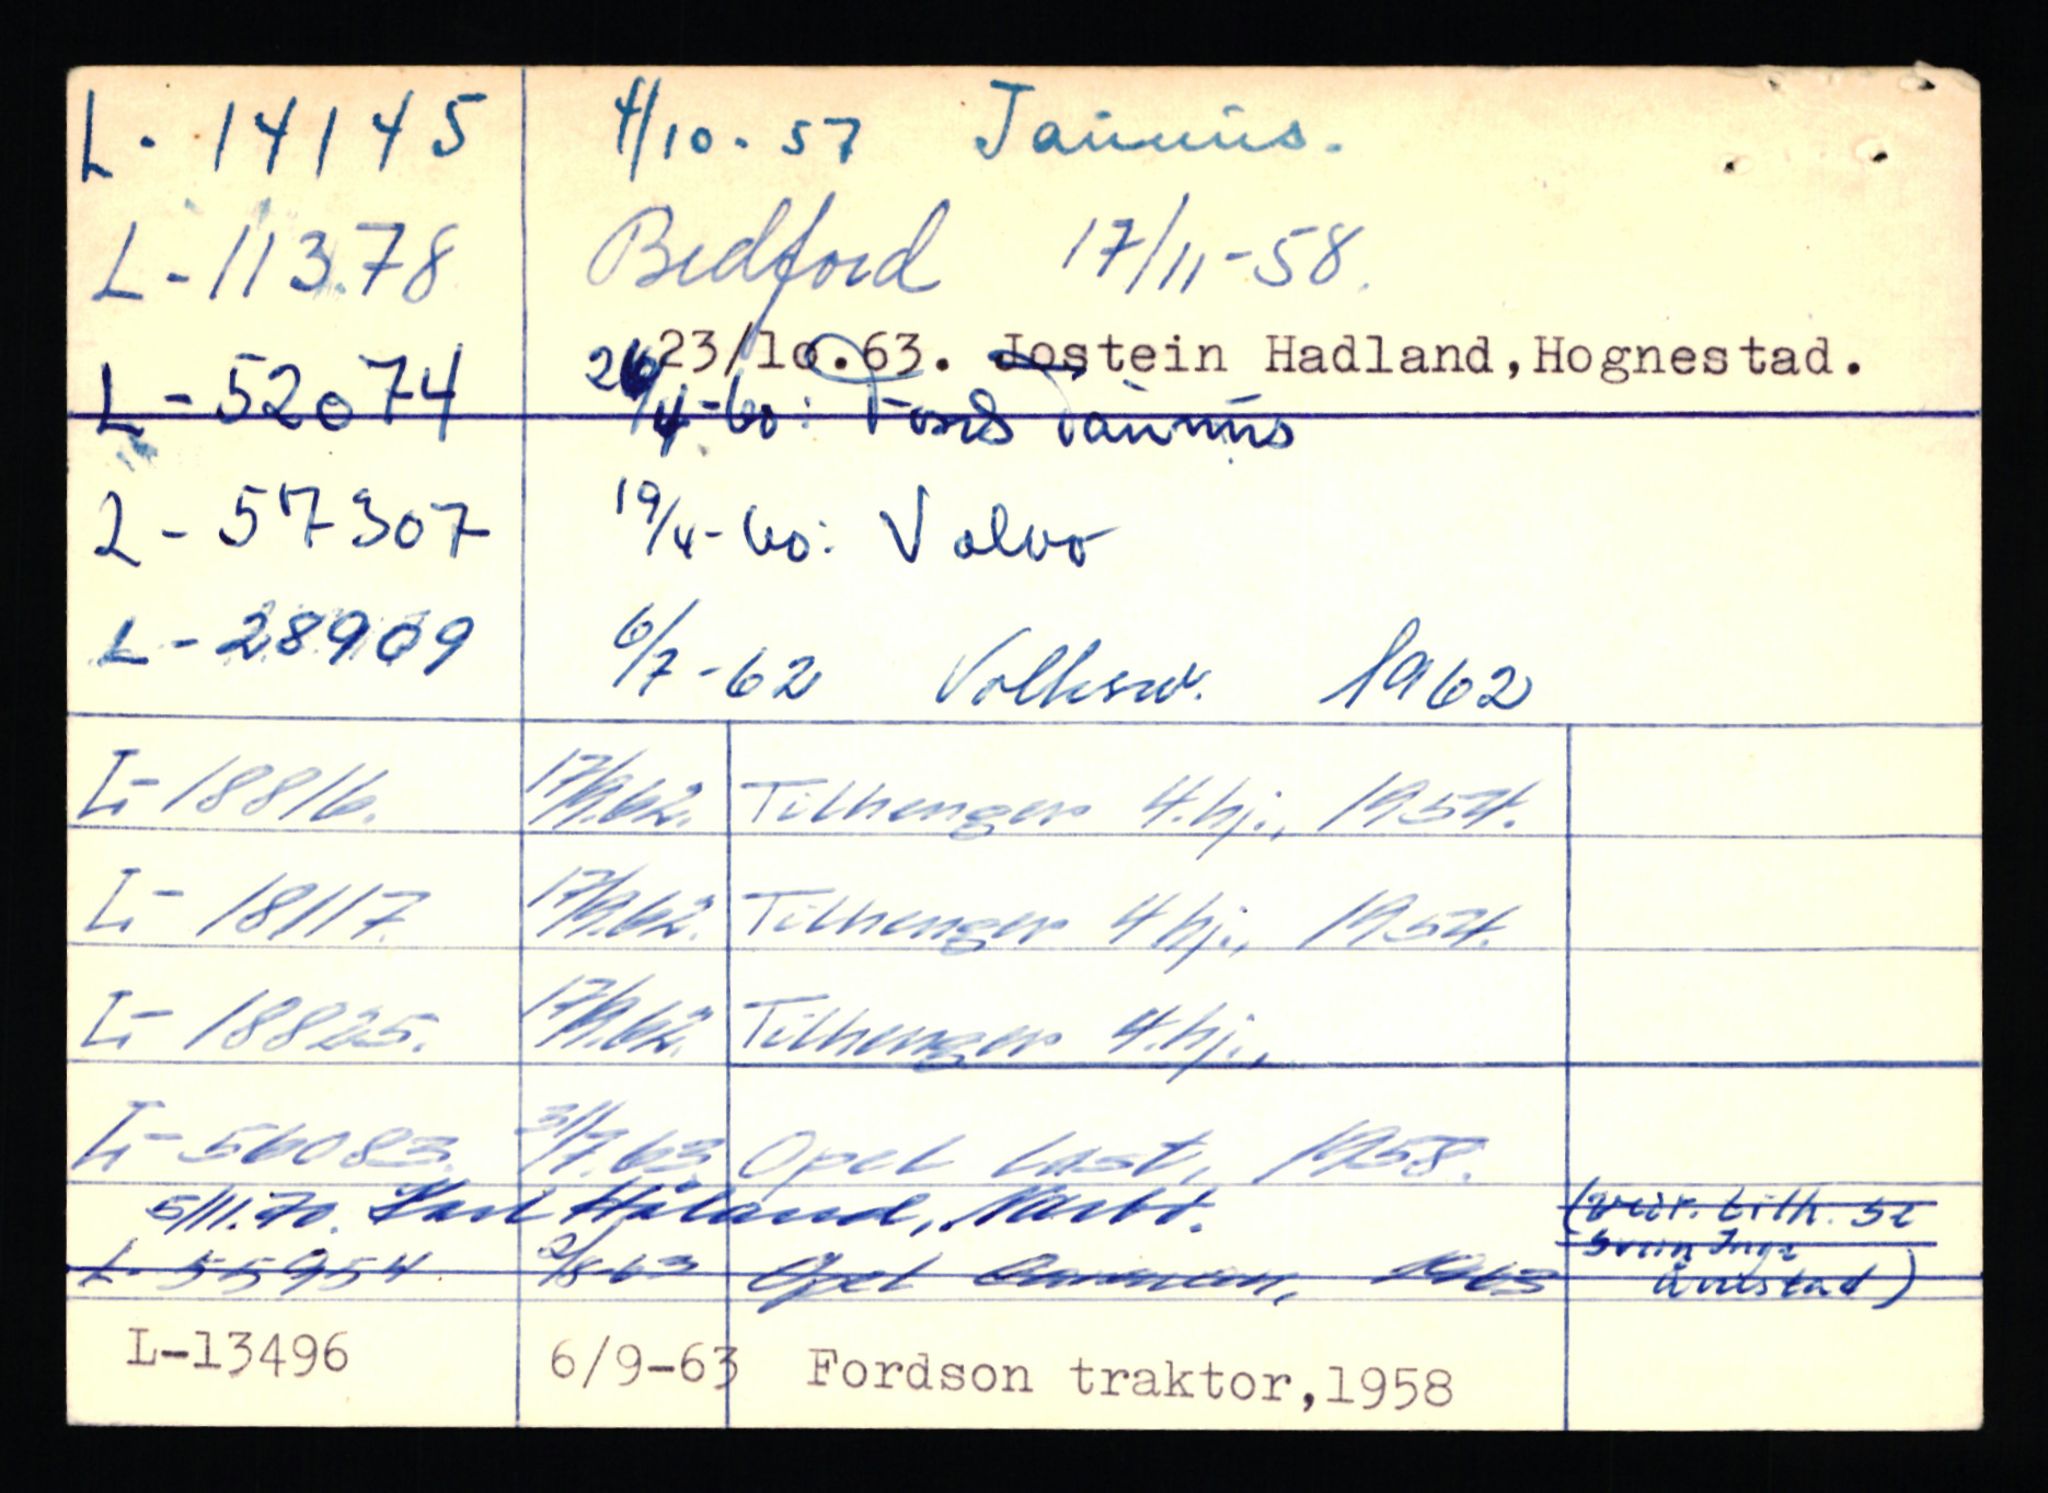 L- 14145 4/10-57 Taunus.
L-11378 Bedford 17/11-58.
23/10.63. Jostein Hadland, Hognestad.
L-52074 26/4-60: Ford Taunus
L-57307 19/4-60: Volvo
L-28909 6/7-62 Volksw. 1962
L-18816. 17/9.62. Tilhenger 4.hj., 1954.
L-18117. 17/9.62. Tilhenger 4 hj., 1954.
L-18825. 17/9.62. Tilhenger 4.hj.,
L-56083. 31/7.63 Opel last, 1958.
5/11.70. Karl Håland, Nærbø. (vedr. tilh. se
Svein Inge
L-55954 2/8-63 Opel 1963 Aurstad)
L-13496 6/9-63 Fordson traktor,1958